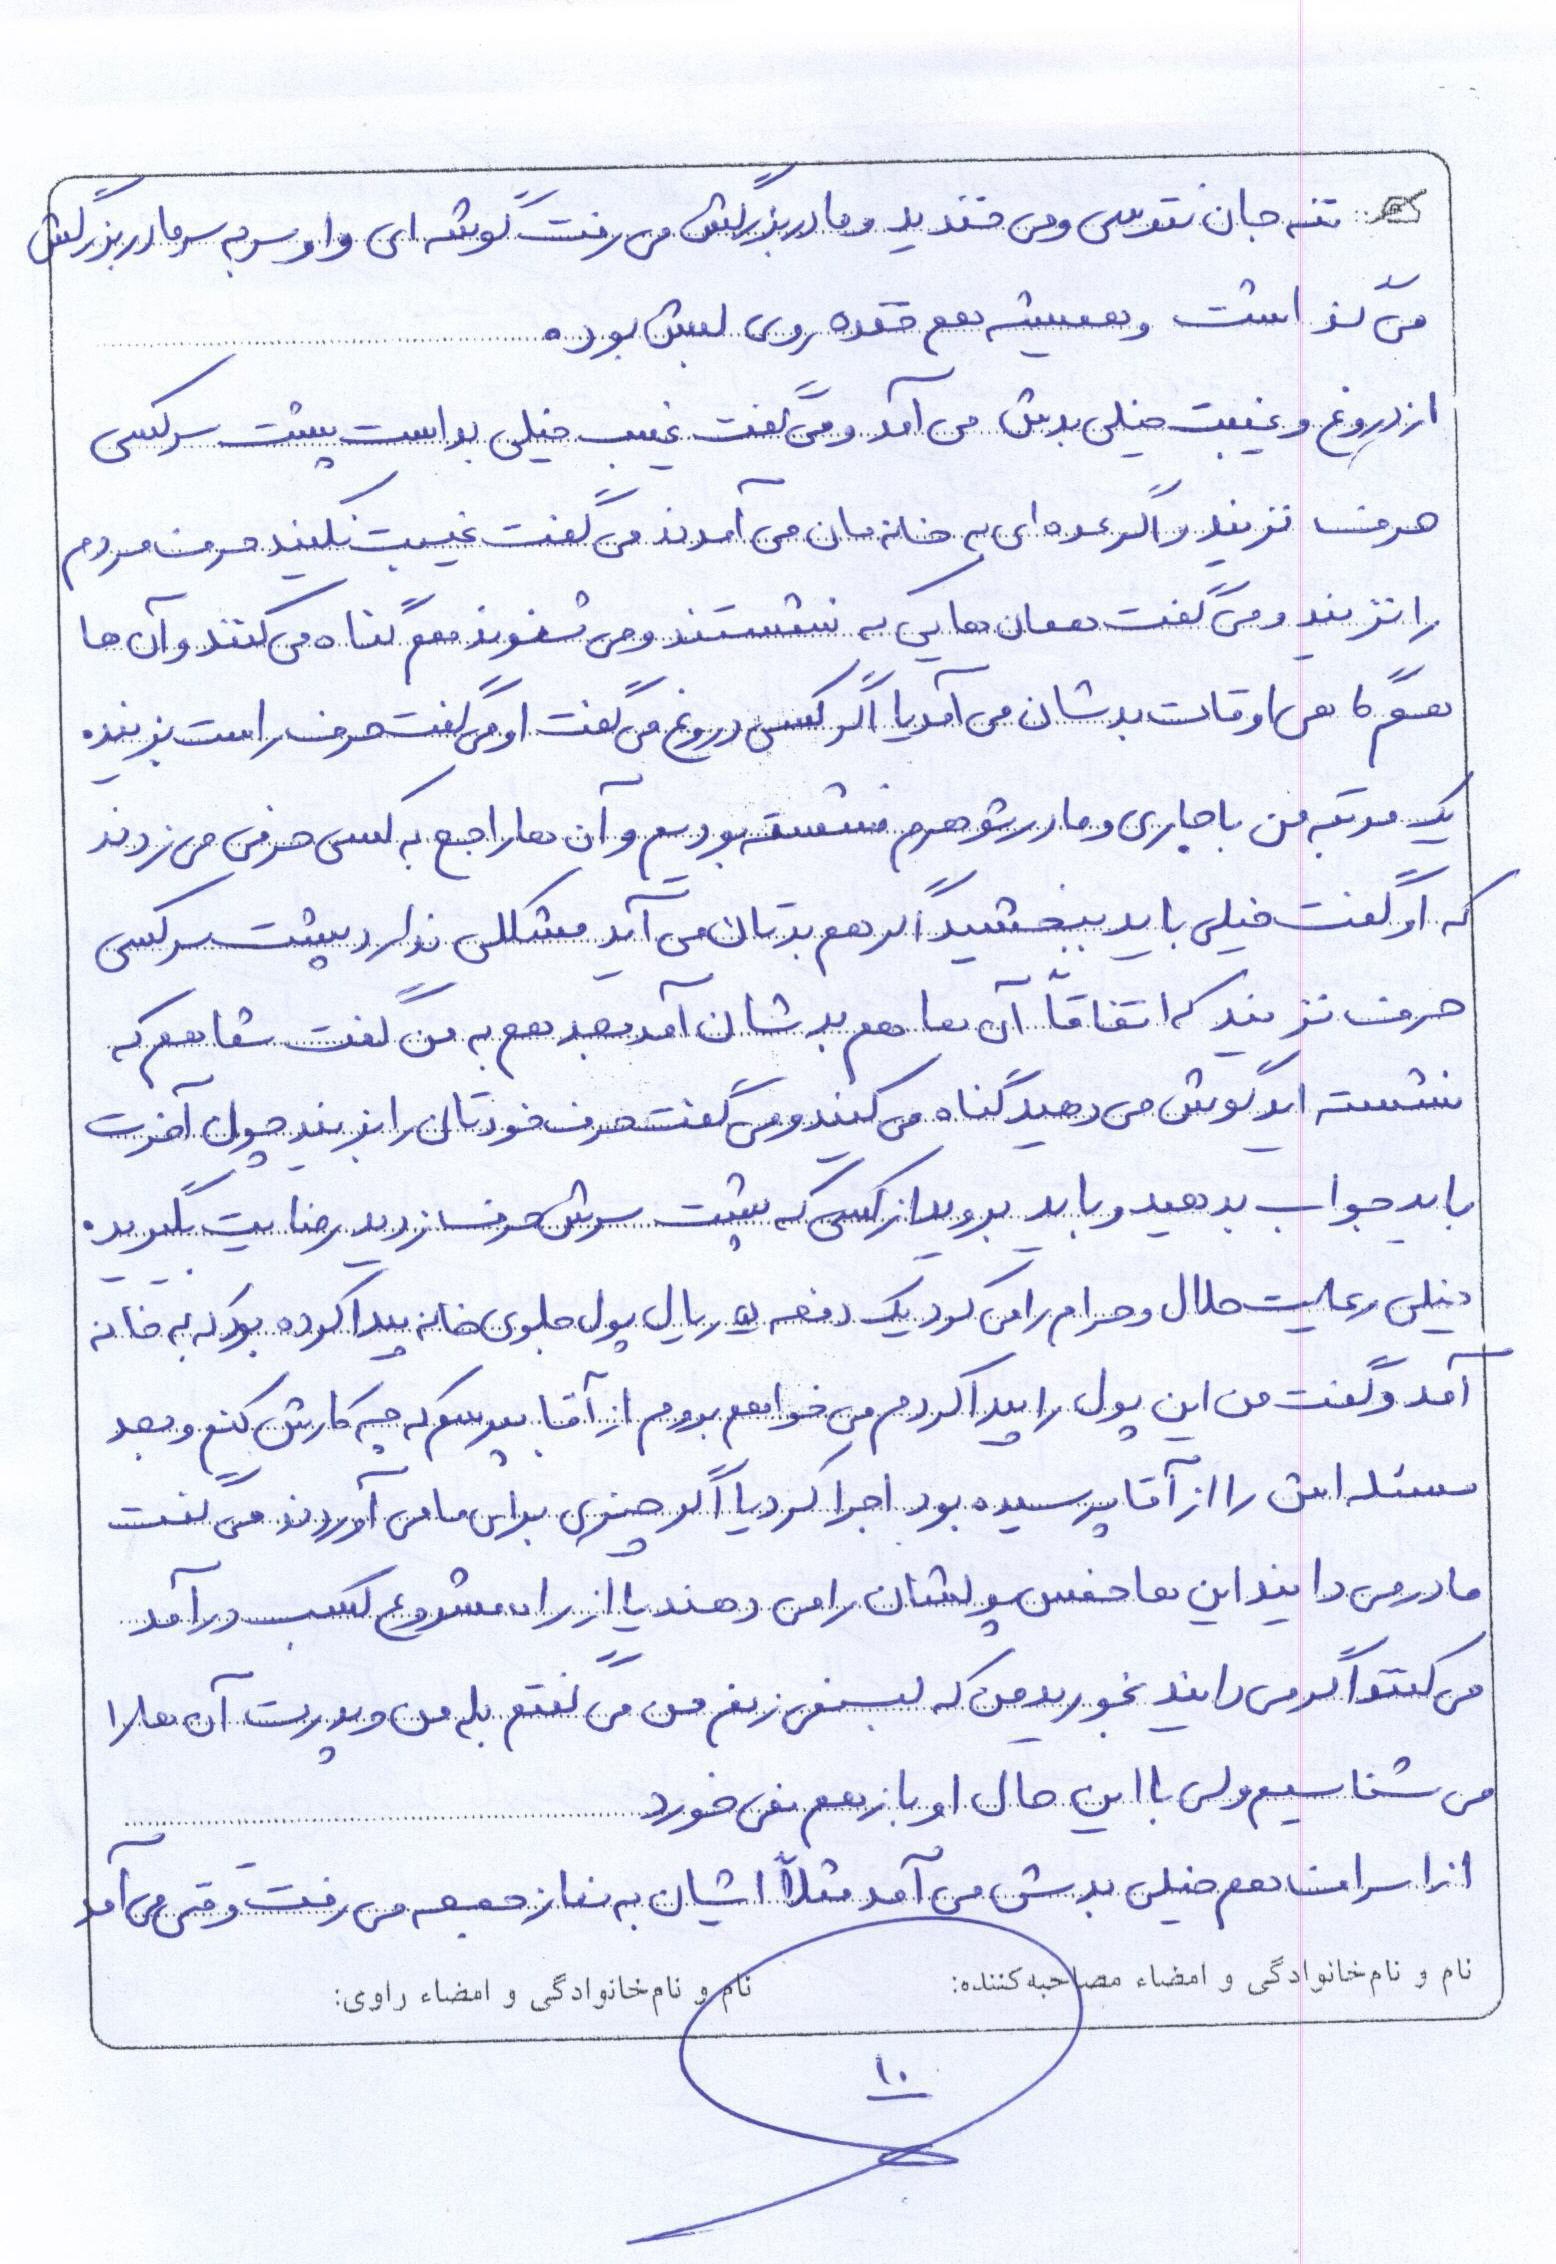 ننه جان نترسی و می خندید و مادربزرگش می رفت گوشه ای و او سر به سر مادربزرگش
می گذاشت و همیشه هم خنده روی لبش بوده
از دروغ و غیبت خیلی بدش می آمد و می گفت غیبت خیلی بد است پشت سر کسی
حرف نزنید و اگر عده ای به خانه مان می آمدند می گفت غیبت نکنید حرف مردم
را نزنید و می گفت همان هایی که نشستند و می شنوند هم گناه می کنند و آن ها
هم گاهی اوقات بدشان می آمد یا اگر کسی دروغ می گفت او می گفت حرف راست بزنیده
یک مرتبه من با جاری و مادر شوهرم نشسته بودیم و آن ها راجع به کسی حرفی می زدند
که او گفت خیلی باید ببخشید اگر هم بدتان می آید مشکلی ندارد پشت سر کسی
حرف نزنید که اتفاقاً آن ها هم بدشان آمد بعد هم به من گفت شما هم که
نشسته اید گوش می دهید گناه می کنید و می گفت حرف خودتان را بزنید چون آخرت
باید جواب بدهید و باید بروید از کسی که پشت سرش حرف زدید رضایت بگیریده
خیلی رعایت حلال و حرام را می کرد یک دفعه ۵ ریال پول جلوی خانه پیدا کرده بود که به خانه
آمد و گفت من این پول را پیدا کردم می خواهم بروم از آقا بپرسم که چه کارش کنم و بعد
مسئله اش را از آقا پرسیده بود اجرا کرد یا اگر چیزی برای ما می آوردند می گفت
مادر می دانید این ها خمس پولشان را می دهند یا از راه مشروع کسب درآمد
می کنند اگر می دانید بخورید من که لب نمی زنم من می گفتم بله من و پدرت آن ها را
می شناسیم ولی با این حال او باز هم نمی خورد
از اسراف هم خیلی بدش می آمد مثلاً ایشان به نماز جمعه می رفت وقتی می آمد
نام و نام خانوادگی و امضاء مصاحبه کننده: نام و نام خانوادگی و امضاء راوی:
۱۰